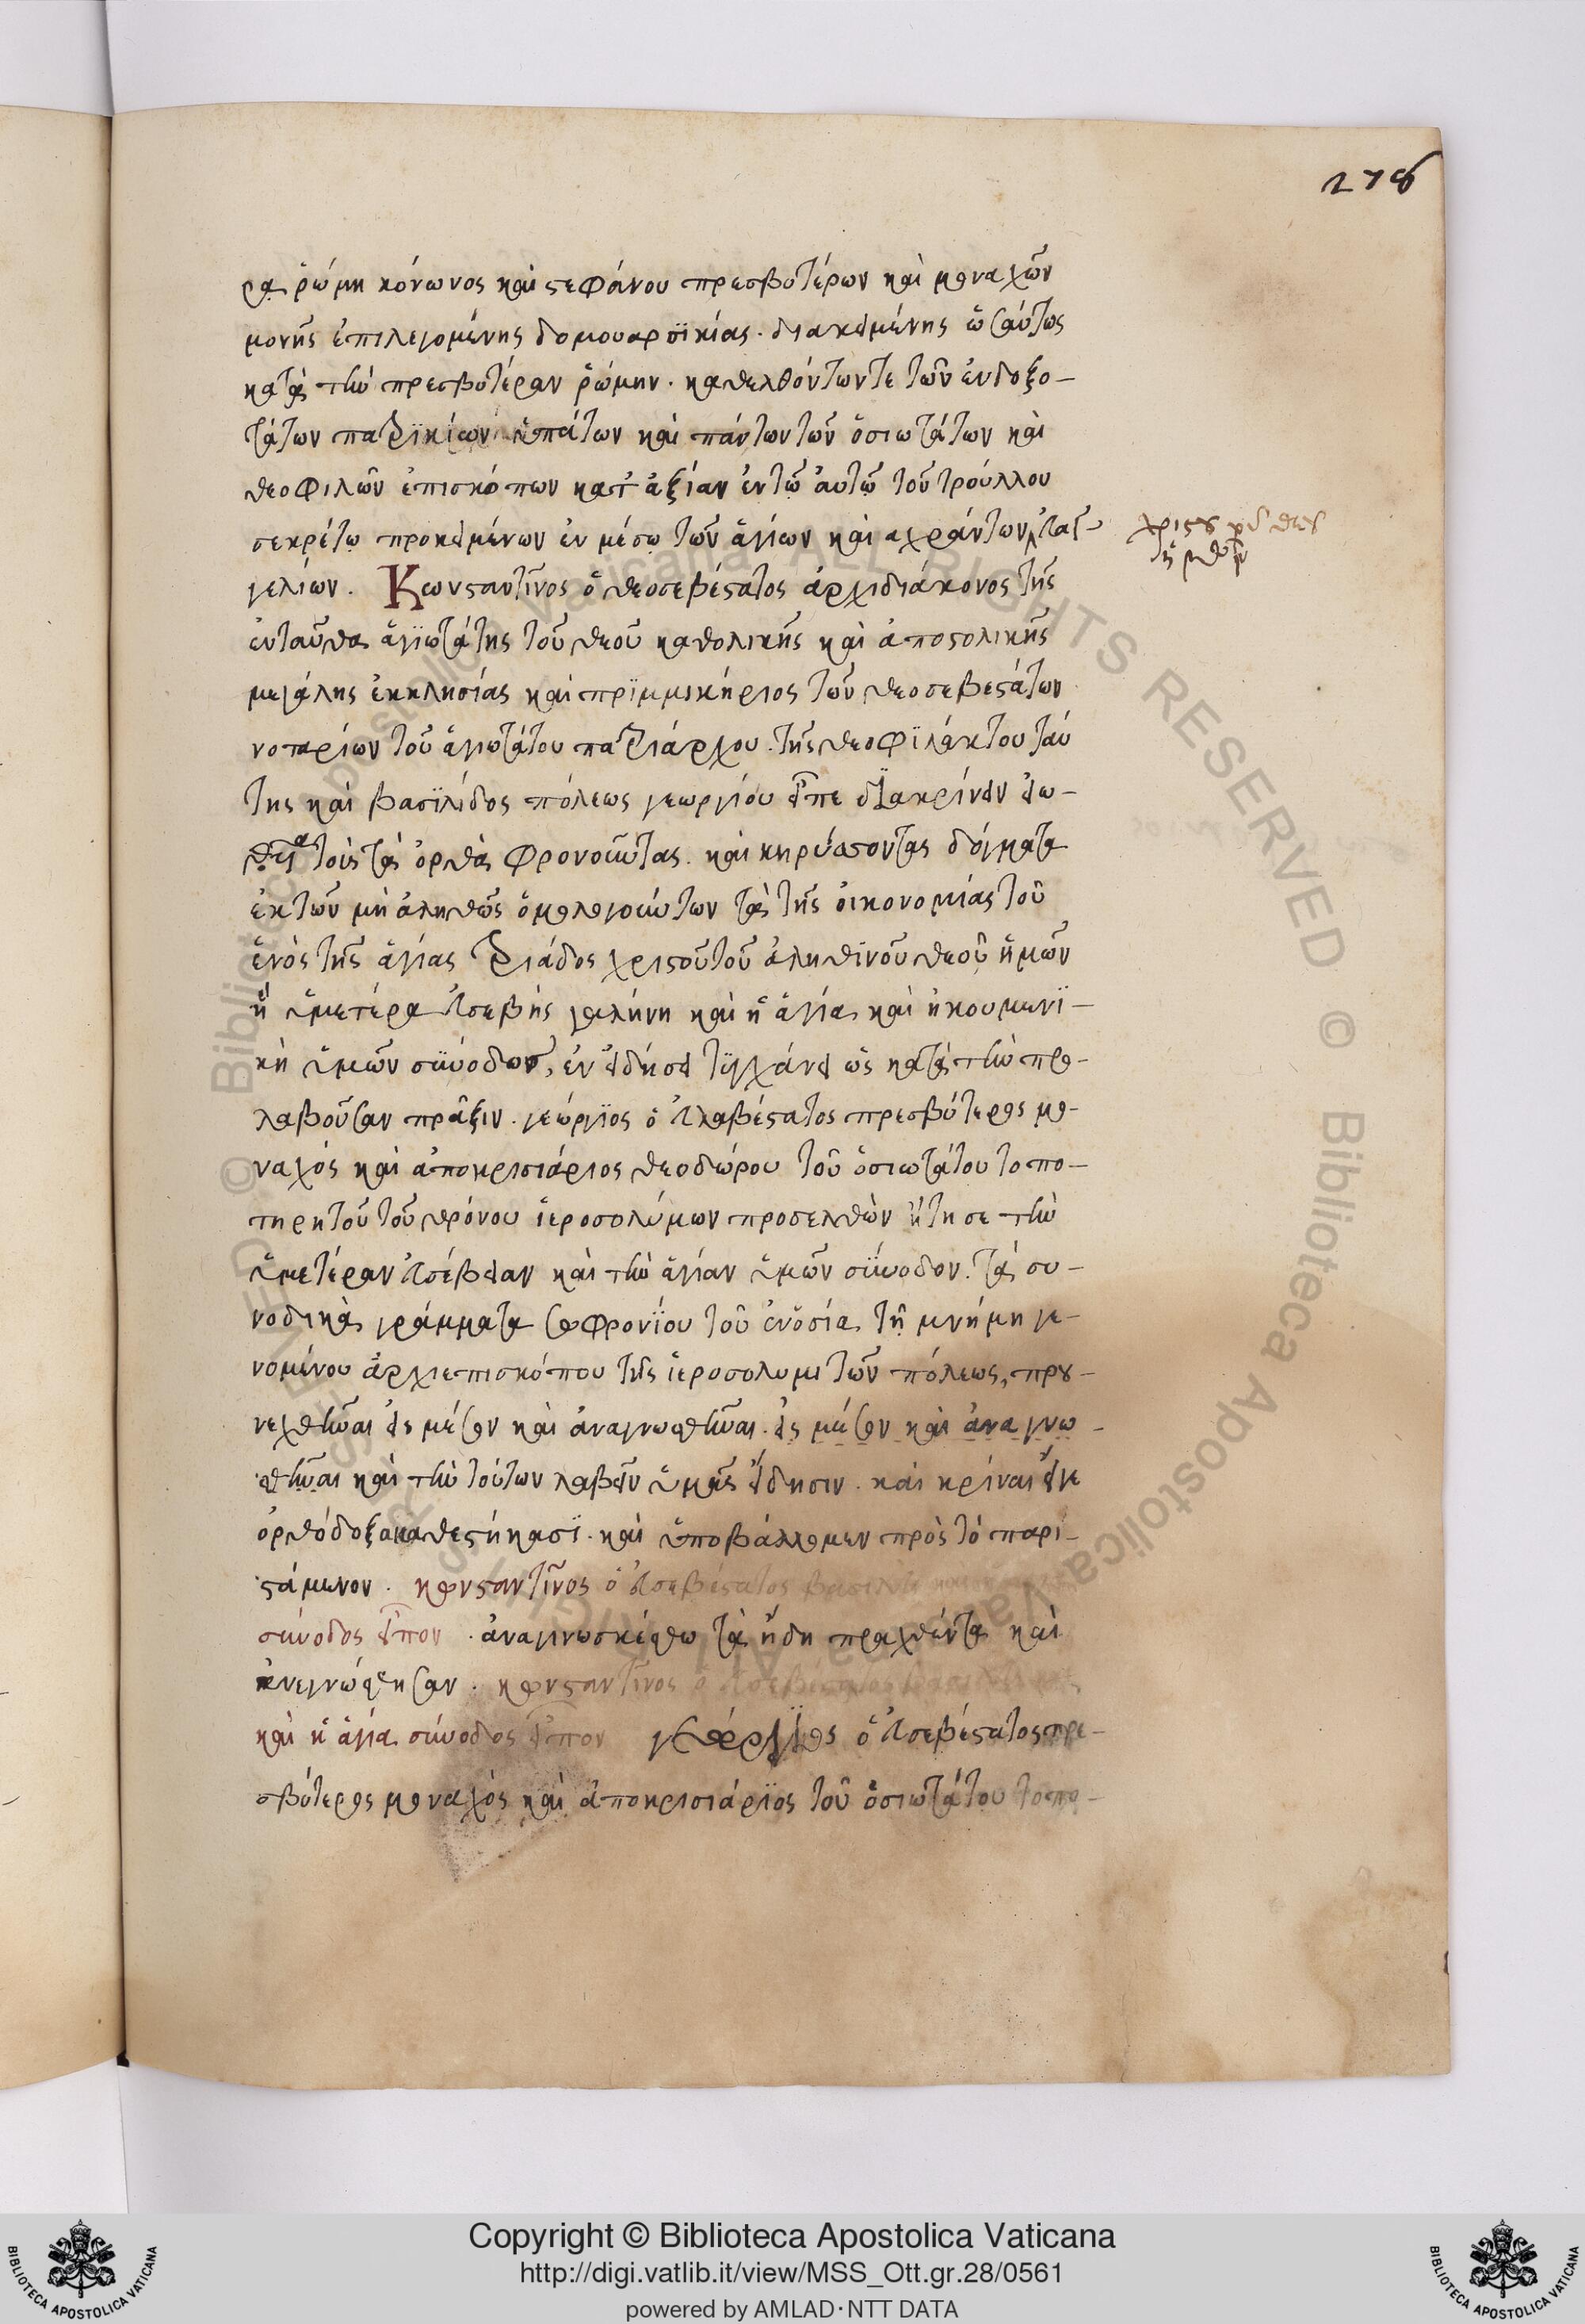 278
ρα ῥώμη κόνωνος καὶ στεφάνου πρεσβυτέρων καὶ μοναχῶν
μονῆς ἐπιλεγομένης δομουαρσϊκίας · διακειμένης ὡσαύτως
κατὰ τὴν πρεσβυτέραν ῥώμην · κατελθόντων τε τῶν ἐνδοξο–
τάτων πατρϊκίων ὑπάτων καὶ πάντων τῶν ὁσιωτάτων καὶ
θεοφιλῶν ἐπισκόπων κατ' ἀξίαν ἐν τῷ αὐτῷ τοῦ τρούλλου
σεκρέτω προκειμένων ἐν μέσω τῶν ἁγίων καὶ αχράντων εὐαγ–
χριστοῦ τοῦ θεοῦ
ἡμῶν
γελίων . Κωνσταντῖνος ὁ θεοσεβέστατος ἀρχιδιάκονος τῆς
ἐνταῦθα ἁγϊωτάτης τοῦ θεοῦ καθολικῆς καὶ ἀποστολικῆς
μεγάλης ἐκκλησίας καὶ πρϊμμικήριος τῶν θεοσεβεστάτων
νοταρίων τοῦ ἁγιωτάτου πατριάρχου . τῆς θεοφϊλάκτου ταύ
της καὶ βασϊλίδος πόλεως γεωργίου εἶπε δϊακρίνειν εἰω–
θεῖα τοὺς τὰ ὀρθὰ φρονοῦντας . καὶ κηρύσσοντας δόγματα
ἐκ τῶν μὴ ἀληθῶς ὁμολογούντων τὰ τῆς οἰκονομίας τοῦ
ἑνὸς τῆς ἁγίας τριάδος χριστοῦ τοῦ ἀληθινοῦ θεοῦ ἡμῶν
ἡ ὑμετέρα εὐσεβὴς γαλήνη καὶ ἡ ἁγία καὶ ἠκουμενϊ–
κὴ ὑμῶν σύνοδος, ἐν εἰδήσει τϋγχάνει ὡς κατὰ τὴν προ–
λαβοῦσαν πρᾶξιν . γεώργϊος ὁ εὐλαβέστατος πρεσβύτερος μο–
ναχὸς καὶ ἀποκρισιάριος θεοδώρου τοῦ ὁσιωτάτου τοπο–
τηρητοῦ τοῦ θρόνου ἱεροσολύμων προσελθὼν ᾔτησε τὴν
ὑμετέραν εὐσέβειαν καὶ τὴν ἁγίαν ὑμῶν σύνοδον . τὰ συ–
νοδικὰ γράμματα σοφρονϊου τοῦ ἐν ὁσία τῇ μνήμη γε–
νομένου ἀρχιεπισκόπου τῆς ἱεροσολυμιτῶν πόλεως, πρου–
νεχθῆναι εἰς μέσον καὶ ἀναγνωσθῆναι . εἰς μέσον καὶ ἀναγνω–
σθῆναι καὶ τὴν τούτων λαβεῖν ὑμᾶς εἴδησιν . καὶ κρίναι εἴγε
ὀρθόδοξα καθεστήκασϊ . καὶ ὑποβάλλομεν πρὸς τὸ παρι–
στάμενον . κονσταντῖνος ὁ εὐσεβέστατος βασιλεὺς καὶ
σύνοδος εἶπον . ἀναγινωσκέσθω τὰ ἤδη πραχθέντα καὶ
ἀνεγνώσθησαν . κονσταντῖνος ὁ εὐσεβέστατος βασιλεὺς
καὶ ἡ ἁγία σύνοδος εἶπον γεώργϊος ὁ εὐσεβέστατος πρε–
σβύτερος μοναχὸς καὶ ἀποκρισιάρϊος τοῦ ὁσιωτάτου τοπο–
Copyright © Biblioteca Apostolica Vaticana
http://digi.vatlib.it/view/MSS_Ott.gr.28/0561
powered by AMLAD·NTT DATA
BIBLIOTECA APOSTOLICA VATICANA
BIBLIOTECA APOSTOLICA VATICANA